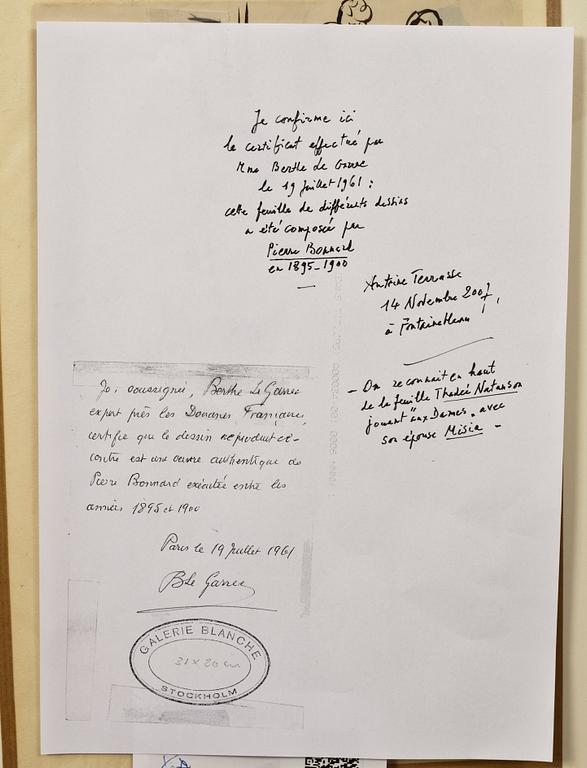 Je confirme ici
le certificat effectué par
Mme Berthe Le Garrec
le 19 Juillet 1961 :
cette feuille de différents dessins
a été composée par
Pierre Bonnard
en 1895-1900
Antoine Terrasse
14 Novembre 2007,
à Fontainebleau
- On reconnaît en haut
de la feuille Thadée Natanson
jouant "aux Dames" avec
son épouse Misia -
Je, soussignée, Berthe Le Garrec
expert près les Douanes Françaises,
certifie que le dessin reproduit ci-
contre est une œuvre authentique de
Pierre Bonnard exécutée entre les
années 1895 et 1900
Paris le 19 Juillet 1961
B Le Garrec
GALERIE BLANCHE
31 x 20 cm
STOCKHOLM